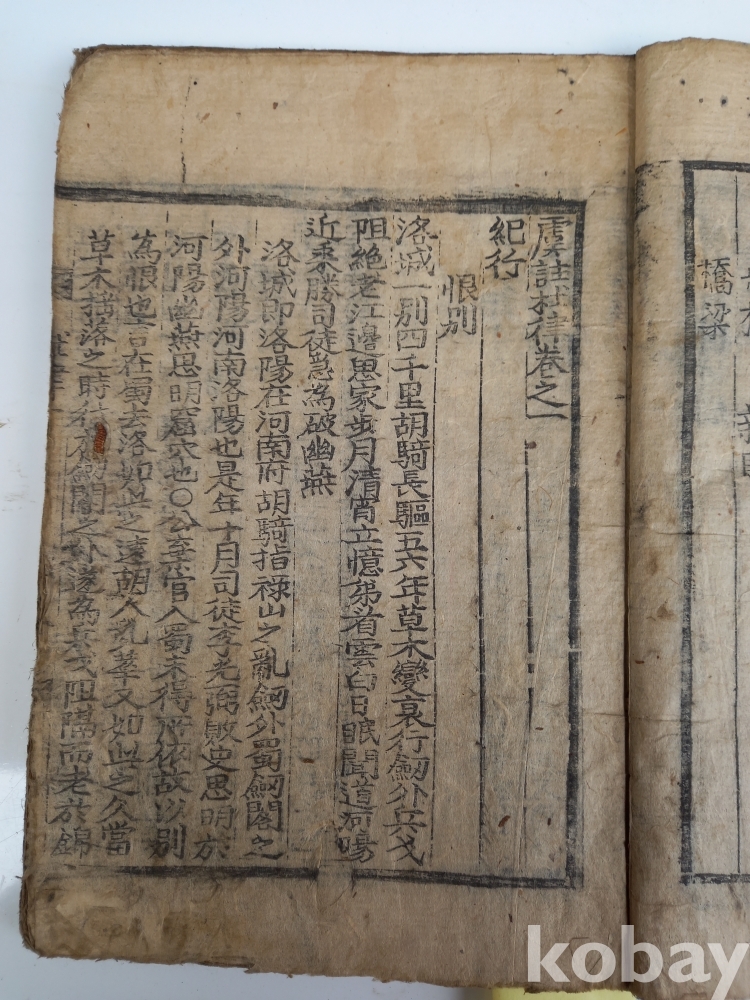 虞註杜律卷之一
紀行
恨別
洛城一別四千里胡騎長驅五六年草木變衰行劒外兵戈
阻絶老江邊思家步月清宵立憶弟看雲白日眠聞道河陽
近乗勝司徒急為破幽燕
洛城即洛陽在河南府胡騎指祿山之亂劒外蜀劒閣之
外河陽河南洛陽也是年十月司徒李光弼敗史思明於
河陽幽燕思明窟穴也〇公棄官入蜀未得所依故以別
為恨也言在蜀去洛如此之遠胡人亂華又如此之久當
草木揺落之時 劒閣之外遂為兵戈阻隔而老於錦
橋梁
kobay